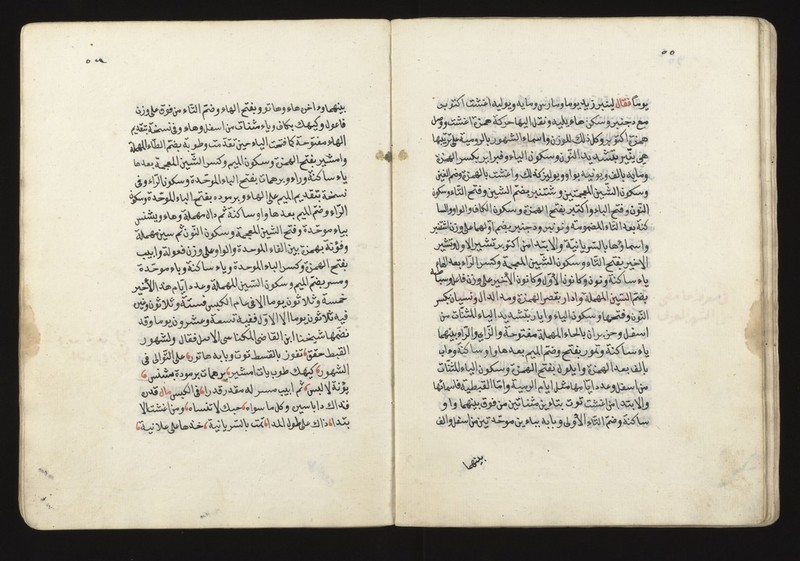 ٥٥
يوما فقال لينير زيد يوما ومارس ومايه ويوليه اغشت اكتوبر
مع دجنبر وسكن هاء يوليه ونقل اليها حركة همزة اغشت ووصل
همزة اكتوبر وكل ذلك للوزن واسماء الشهور بالرومية على ترتيبها
هي ينير بتشديد النون وسكون الياء وفبراير بكسر الهمزة
ومايه بالف ويونيه بواو ويوليز كذلك واغشت بالهمزة وضم الغين
وسكون الشين المعجمتين وشتنبر بضم الشين وفتح التاء وسكون
النون وفتح الباء واكتبر بفتح الهمزة وسكون الكاف والواو الساا
كنة بعد التاء المضمومة ونونبر ودجنبر بضم اولهما على وزن اشتبر
واسماؤها بالسريانية والابتدا من اكتوبر تشرير الاول وتشير
الاخير بفتح التاء وسكون الشين المعجمة وكسر الراء بعدها
ياء ساكنة ونون وكانون الاول وكانون الاخير على وزن فاعل وسباط
بضم السين المهملة واذار بقصر الهمزة ومد الدال ونيسان بكسر
النون وفتحها وسكون الياء وايار بتشديد الياء المثناة من
اسفل وحزيران بالحاء المهملة مفتوحة والزاي والراء بينهما
ياء ساكنة وتموز بفتح وضم الميم بعدها واو ساكنة وءاب
بالف بعد الهمزة وايلول بفتح الهمزة وسكون الياء المثناة
من اسفل وعدد ايامها مثل ايام الرومية واما القبطية فاسمائها
والابتدا من اغشت توت بتاءين مثناتين من فوق بينهما واو
ساكنة وضم التاء الاولى وبابه بباءين موحدتين من اسفل والف
بينهما
بينهما وءاخره هاء وهاتور بفتح الهاء وضم التاء من فوق على وزن
فاعول وكيهك بكاف وياء مثناة من اسفل وهاء وفي نسخة تقديم
الهاء مفتوحة كما فتحت الياء حين تقدمت وطوبه بضم الطاء المهملة
وامشير بفتح الهمزة وسكون الميم وكسر الشين المعجمة بعدها
ياء ساكنة وراء وبرهمات بفتح الباء الموحدة وسكون الراء وفي
نسخة بتقديم الميم على الهاء وبرمودة بفتح الباء الموحدة وسكون
الراء وضم الميم بعدها واو ساكنة ثم دال مهملة وهاء وبشنس
بباء موحدة وفتح الشين المعجمة وسكون النون ثم سين مهملة
وفؤنة بهمزة بين الفاء الموحدة والواو على وزن فعولة وابيب
بفتح الهمزة وكسر الباء الموحدة وياء ساكنة وباء موحدة
ومسر بضم الميم وسكون السين المهملة وعدد ايام هذا الاخير
خمسة وثلاثون يوما الا في عام الكبس فستة وثلاثون وبين
فيه ثلاثون يوما الا الاول ففيه تسعة وعشرون يوما وقد
نظمها شيخنا ابن القاضي المكناسي الاصل فقال ولشهور
القبط حقق تفوز بالقسط توت وبابه هاتور على التوالى في
الشهور كيهك طوب يات امشير برهمات برمودة بشنس
يؤنة لا لبس ثم ابيب مسر له مقدر قدرا في الكبس مال قدره
فذاك داباسين وكل ما سواه حبك لا تنساه ومن اغشت الا
بتدا ذاك على طول المدا تمت بالسريانية خذها على علانية